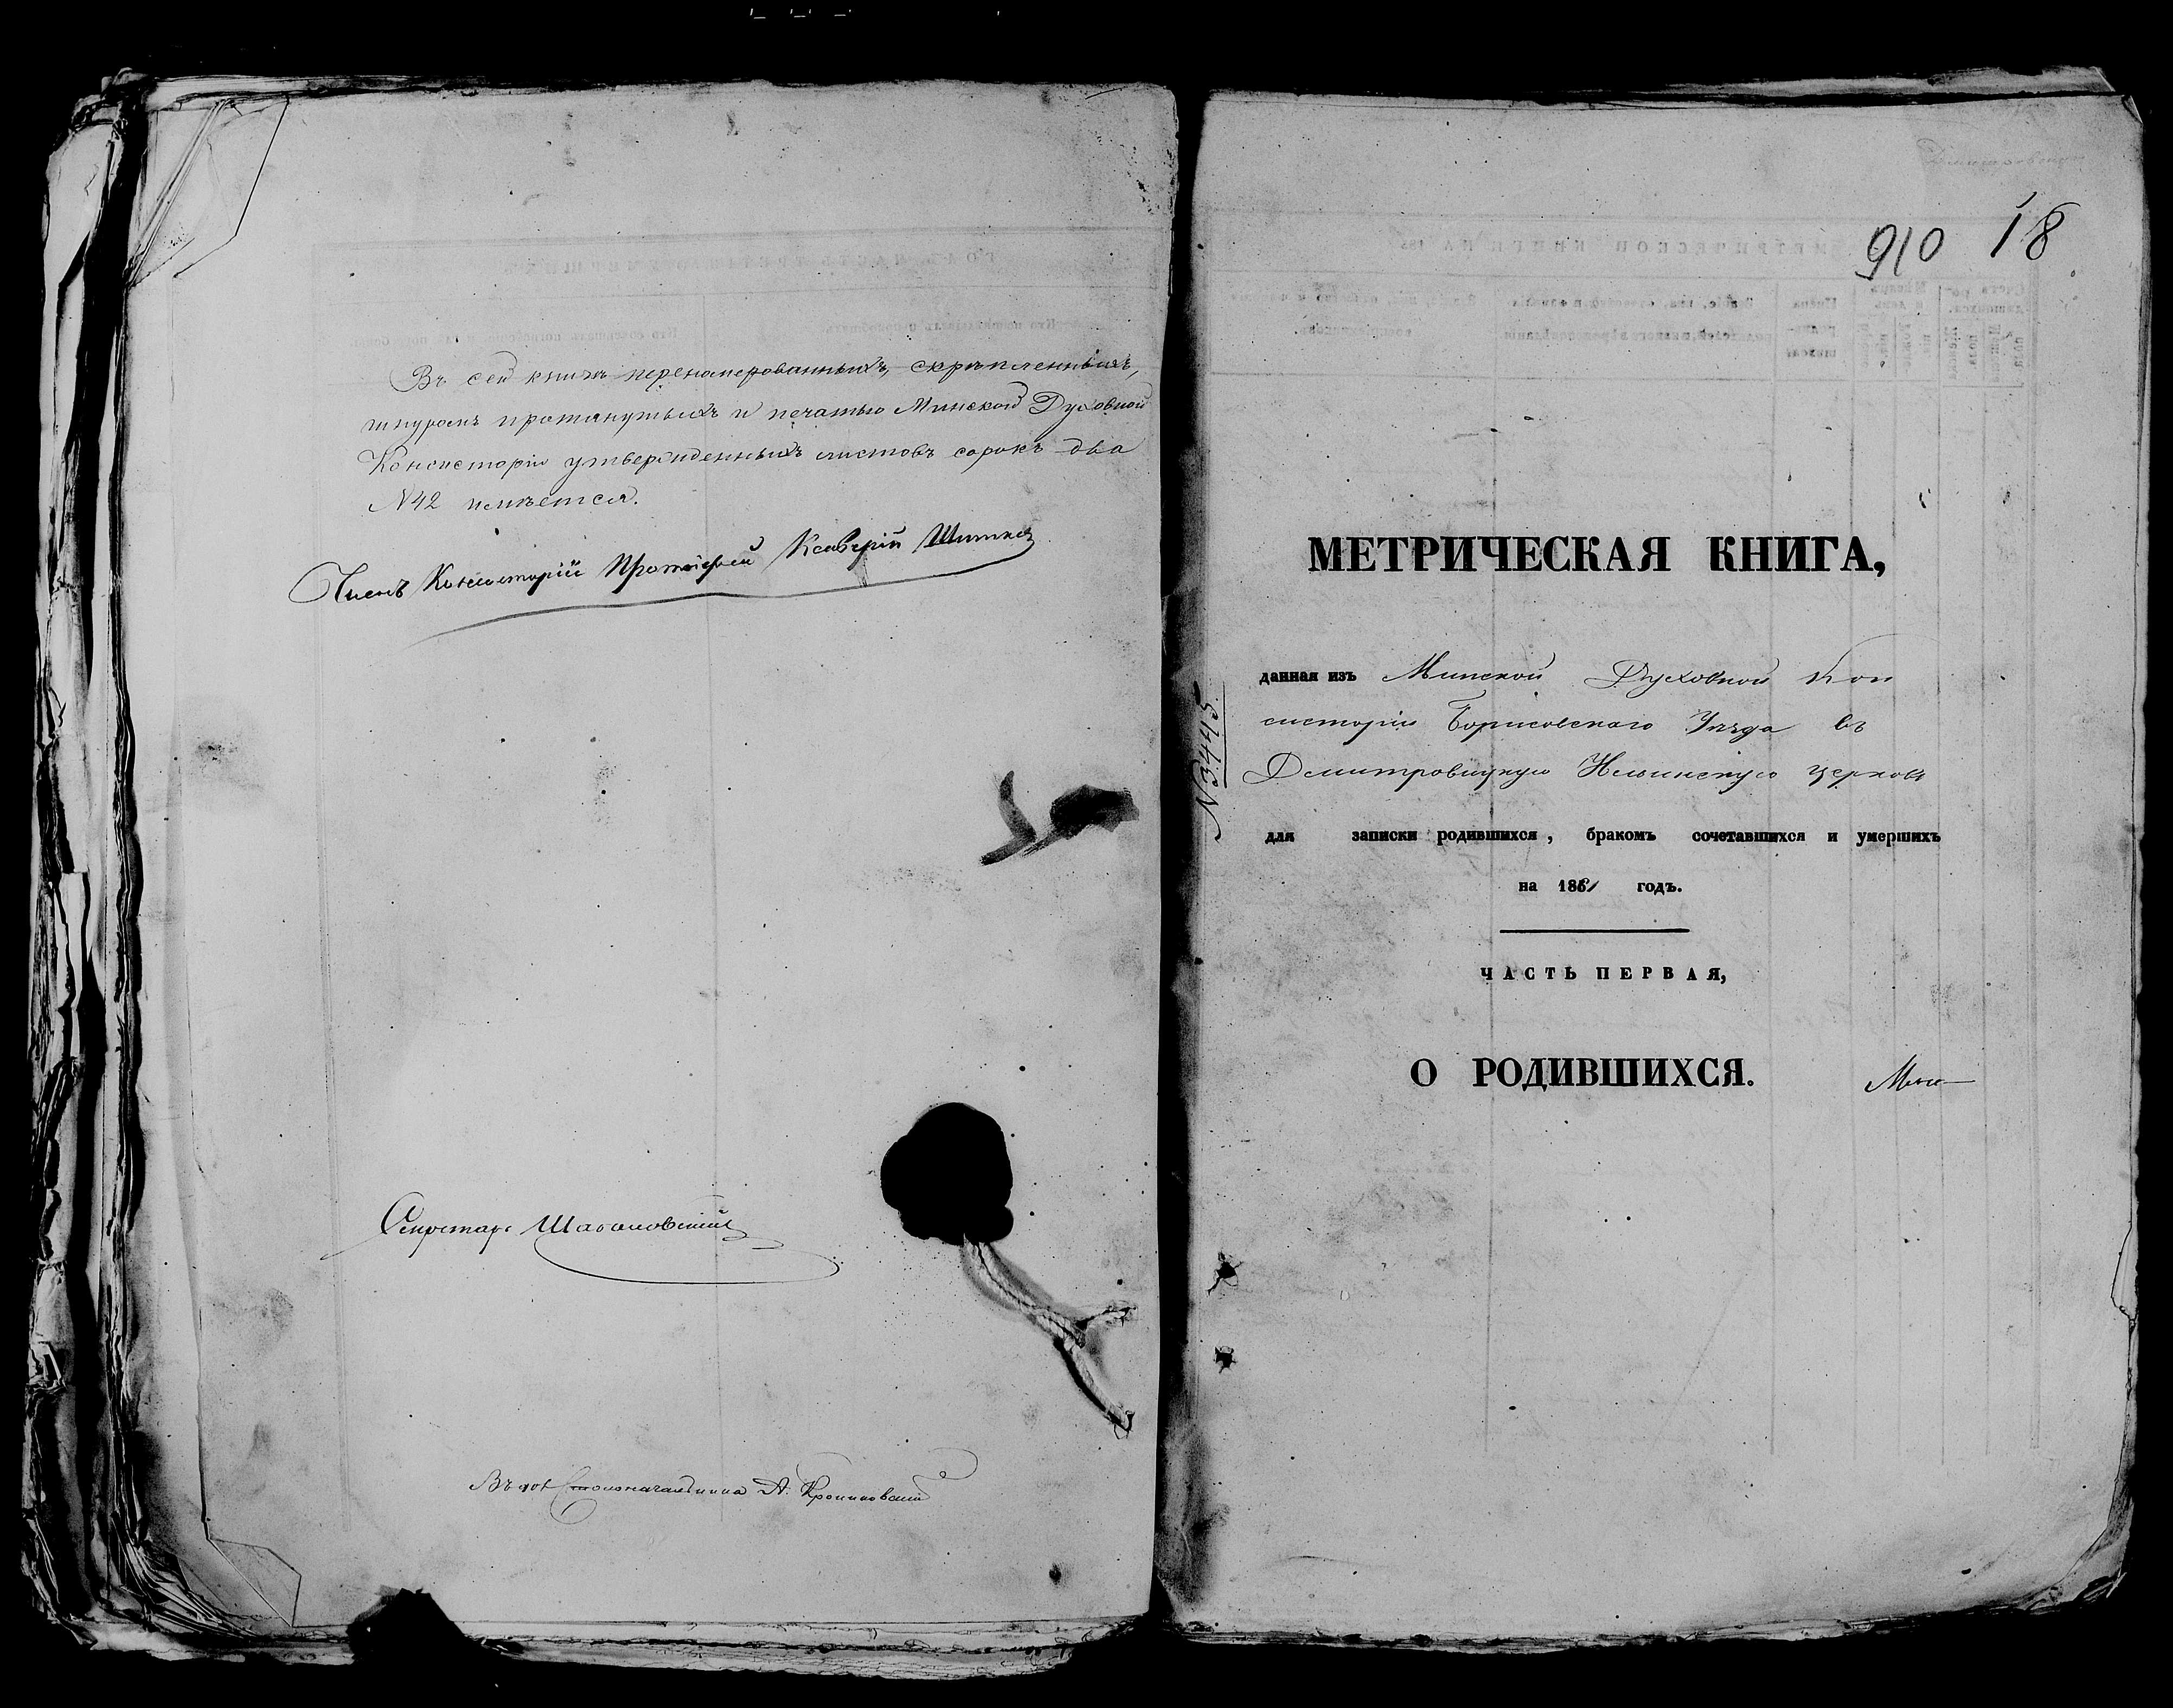 Въ сей книгѣ перенамерованныхъ, скрѣпленныхъ,
шнуромъ протянутыхъ и печатью Минской Духовной
Консисторіи утвержденныхъ листовъ сорокъ два
N42 имѣется.
Членъ Консисторіи Протоіерей Ксаверій
Секретарь
Столоначальника А.
910 18
МЕТРИЧЕСКАЯ КНИГА,
данная изъ Минской Духовной Кон
систоріи Борисовскаго Уѣзда въ
Дмитровицкую Ильинскую церковь
N3445
для записки родившихся, бракомъ сочетавшихся и умершихъ
на 1861 годъ.
ЧАСТЬ ПЕРВАЯ,
О РОДИВШИХСЯ.